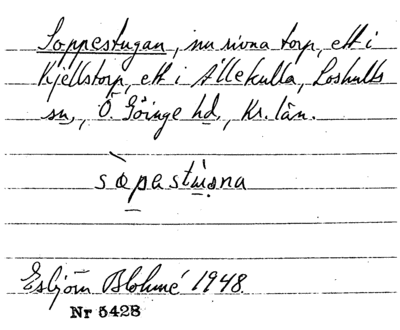 Soppestugan, nu rivna torp, ett i
Kjellstorp, ett i Ållekulla, Loshults
sn., Ö. Göinge hd., Kr. län.
Esbjörn Blohmé 1948.
Nr 5428